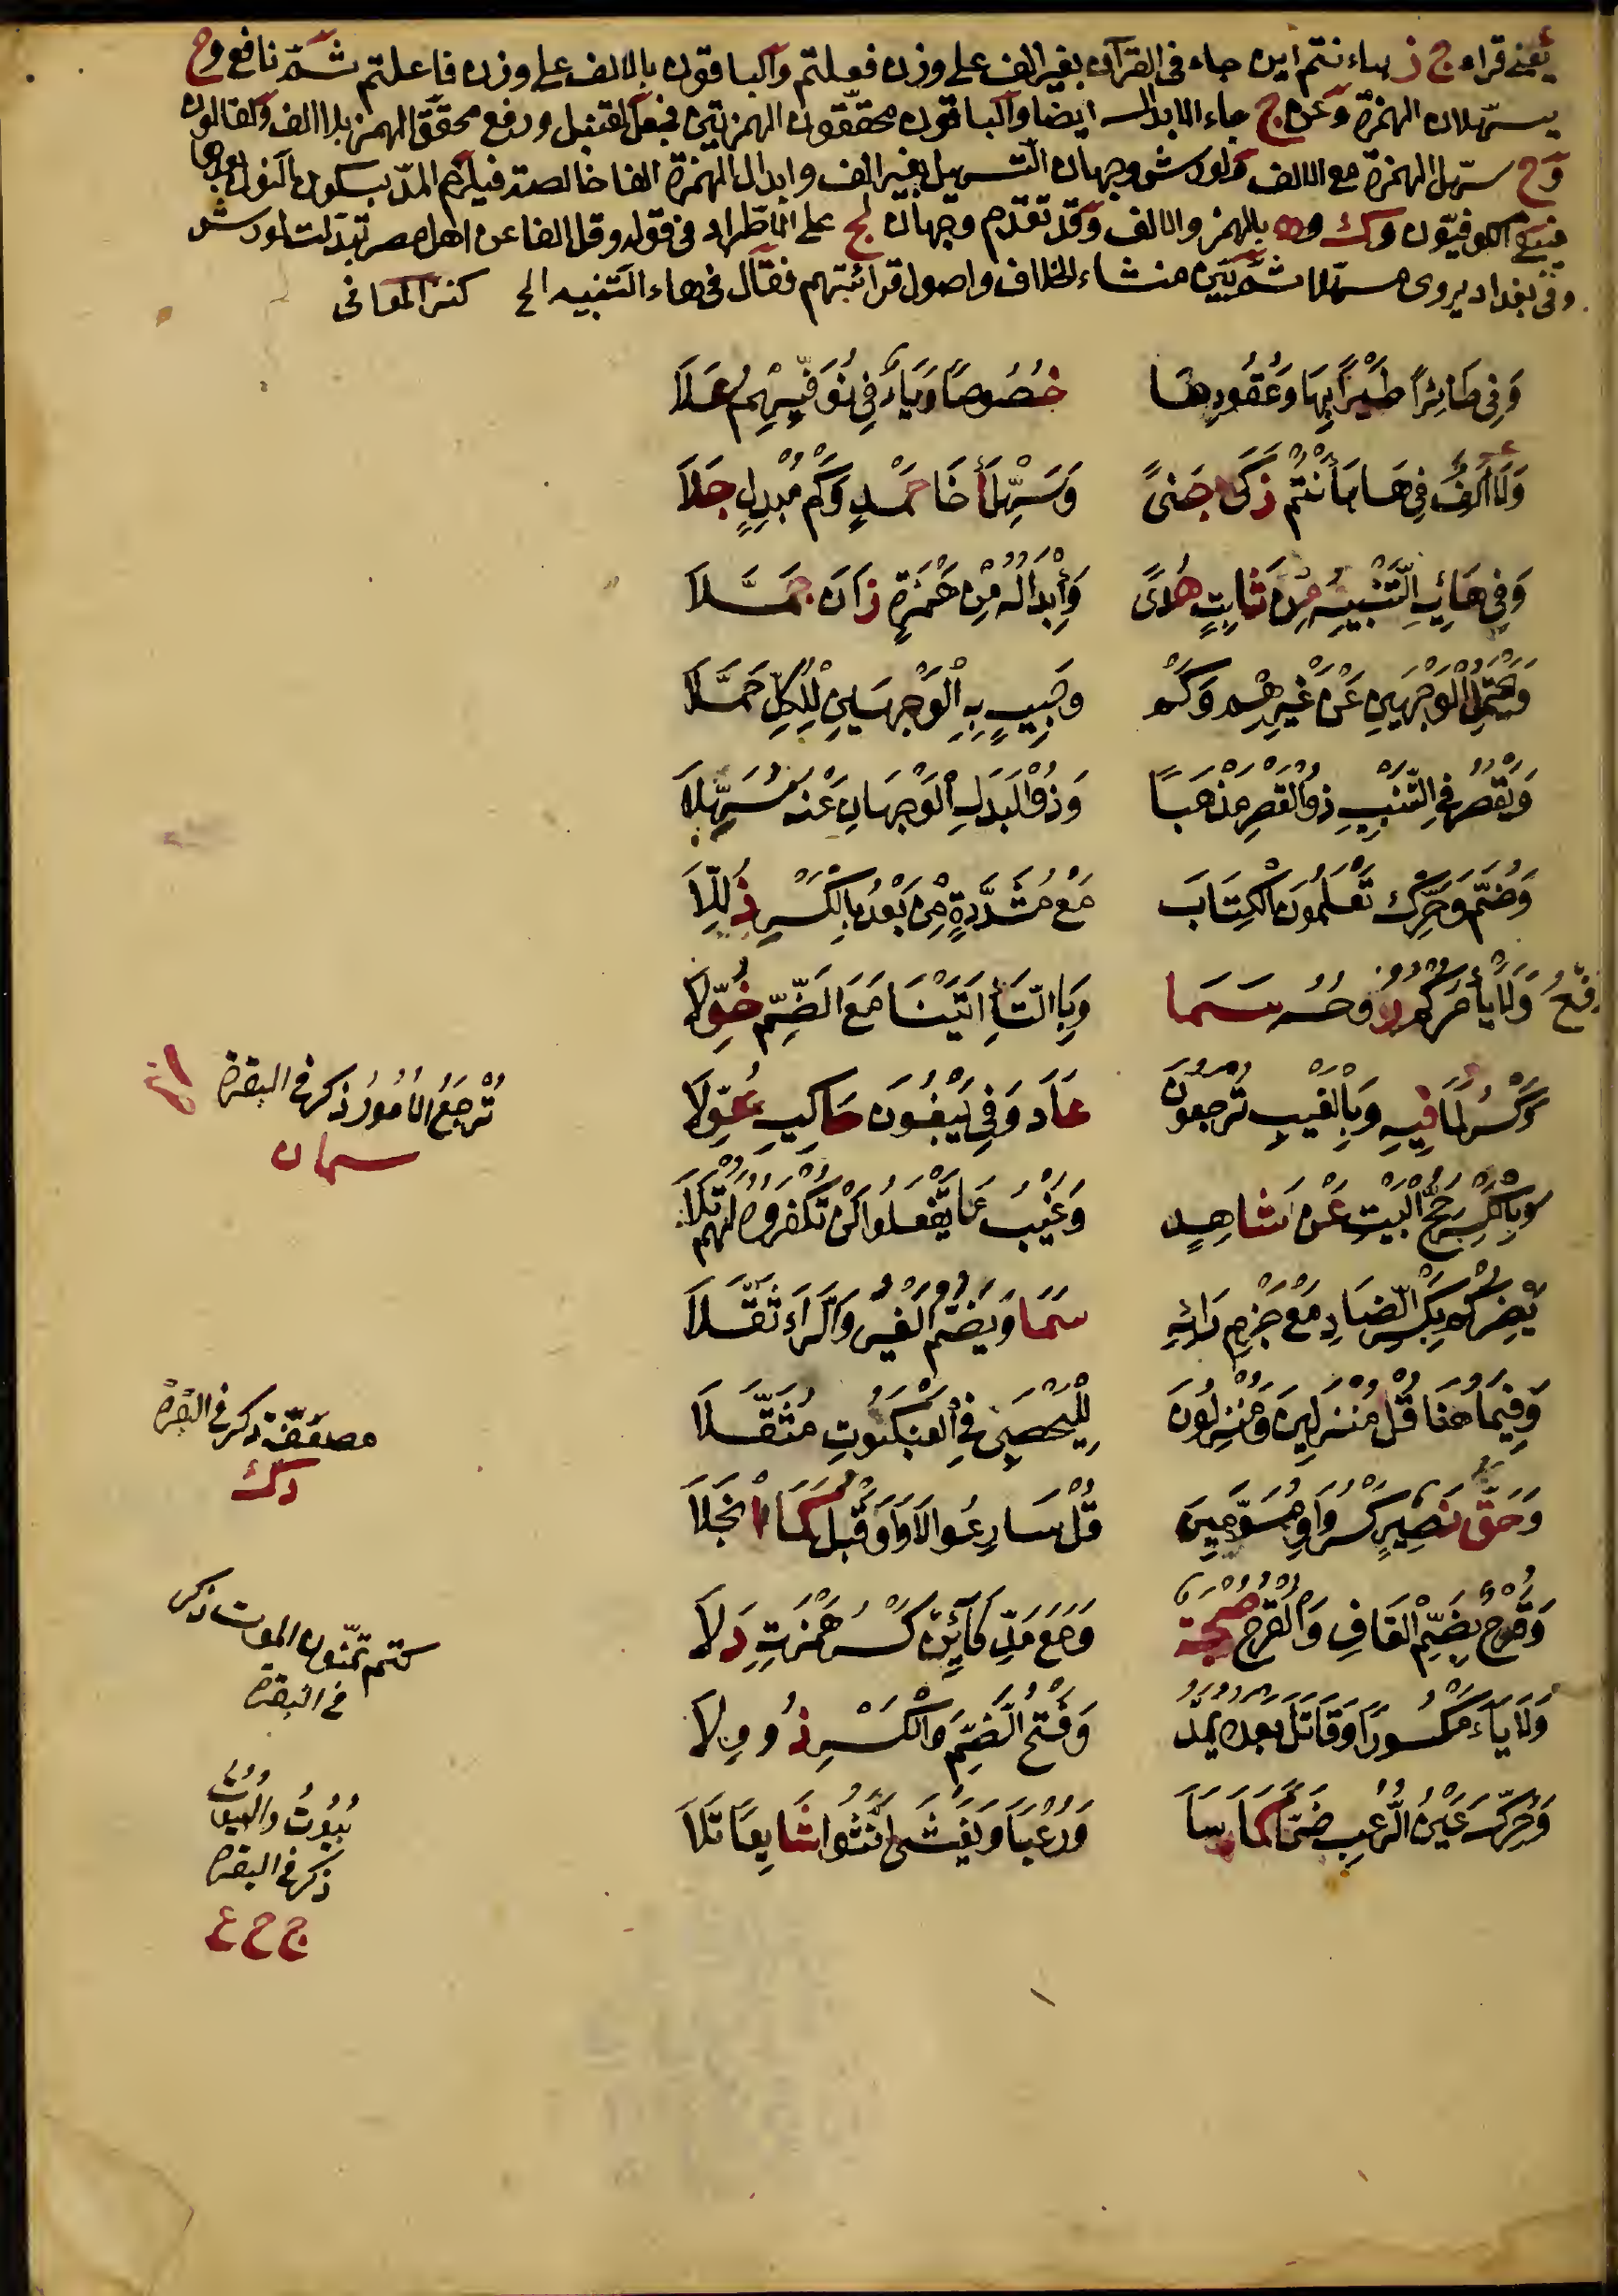 يعنى قراء ج ز هاء نتم اين جاء فى القرآن بغير الف على وزن فعلتم والباقون بالالف على وزن فاعلتم ثم نافع وح
يسهلان الهمزة وعن ج جاء الابدال ايضا والباقون محققون الهمزتين فجعل لقنبل ورفع محقق الهمز بلا الف ولقالون
وح سهل الهمزة مع الالف ولورش وجهان التسهيل بغير الف وابدال الهمزة الفا خالصة فيلزم المد بسكون النون بعدها
فبقى الكوفيون وك وه بالهمز والالف وقد تقدم وجهان لج على الاطراد فى قوله وقل الفا عن اهل مصر تبدلت لورش
وفى بغداد يروى مسهلا ثم بين منشاء الخلاف واصول قرائتهم فقال فى هاء التنبيه الخ كنز المعانى
وَفِي طَائِرًا طَيْرًا بِهَا وَعُقُودِهَا خُصُوصًا وَيَاءٌ فِي نُوَفِّيهِمُ عَلَا
وَلَا أَلِفٌ فِي هَا هَأَنْتُمْ زَكَى جَنىً وَسَهِّلْ أَخَا حَمْدٍ وَكَمْ مُبْدِلٍ جَلَا
وَفِي هَائِهِ التَّنْبِيهُ مِنْ ثَابِتٍ هُدىً وَإِبْدَالُهُ مِنْ هَمْزَةٍ زَانَ جَمَّلَا
وَيَحْتَمِلُ الْوَجْهَيْنِ عَنْ غَيْرِهِمْ وَكَمْ وَجِيهٍ بِهِ الْوَجْهَيْنِ لِلْكُلِّ حَمَّلَا
وَيَقْصُرُ فِي التَّنْبِيهِ ذُو الْقَصْرِ مَذْهَبًا وَذُو الْبَدَلِ الْوَجْهَانِ عَنْهُ مُسَهِّلَا
وَضُمَّ وَحَرِّكْ تَعْلَمُونَ الْكِتَابَ مَعْ مُشَدَّدَةٍ مِنْ بَعْدُ بِالْكَسْرِ ذُلِّلَا
رَفْعُ وَلَا يَأْمُرَكُمُو رُوحُهُ سَمَا وَبِالتَّاءِ اٰتَيْنَا مَعَ الضَّمِّ خُوِّلَا
وَكَسْرُ لِمَا فِيهِ وَبِالْغَيْبِ تُرْجَعُونَ عَادَ وَفِي يَبْغُونَ حَاكِيهِ عُوِّلَا
تُرْجَعُ الْاُمُورُ ذكر فى البقرة
سمان
وَبِالْكَسْرِ حَجُّ الْبَيْتِ عَنْ شَاهِدٍ وَغَيْبُ مَا يَفْعَلُوا لَنْ تُكْفَرُوهُ لَهُمْ تَلَا
يَضِرْكُمْ بِكَسْرِ الضَّادِ مَعْ جَزْمِ رَائِهِ سَمَا وَيَضُمُّ الْغَيْرُ وَالرَّاءَ ثَقَّلَا
وَفِيمَا هُنَا قُلْ مُنْزَلِينَ وَمُنْزِلُونَ لِلْيَحْصُبِي فِي الْعَنْكَبُوتِ مُثَقَّلَا
مضعفة ذكر فى البقرة
دك
وَحَقُّ نَصِيرٍ كَسْرُ وَاوِ مُسَوِّمِينَ قُلْ سَارِعُوا لَا وَاوَ قَبْلُ كَمَا انْجَلَا
وَقَرْحٌ بِضَمِّ الْقَافِ وَالْقَرْحُ صُحْبَةٌ وَمَعْ مَدِّ كَائِنْ كَسْرُ هَمْزَتِهِ دَلَا
كنتم تمنون الموت ذكر
فى البقرة
وَلَا يَاءَ مَكْسُورًا وَقَاتَلَ بَعْدَهُ يُمَدُّ وَفَتْحُ الضَّمِّ وَالْكَسْرِ ذُو وِلَا
وَحُرِّكَ عَيْنُ الرُّعْبِ ضَمًّا كَمَا رَسَا وَرُعْبًا وَيَغْشَى اَنَّثُوا شَائِعًا تَلَا
بُيُوتُ والبيوت
ذكر فى البقرة
ج ح ع